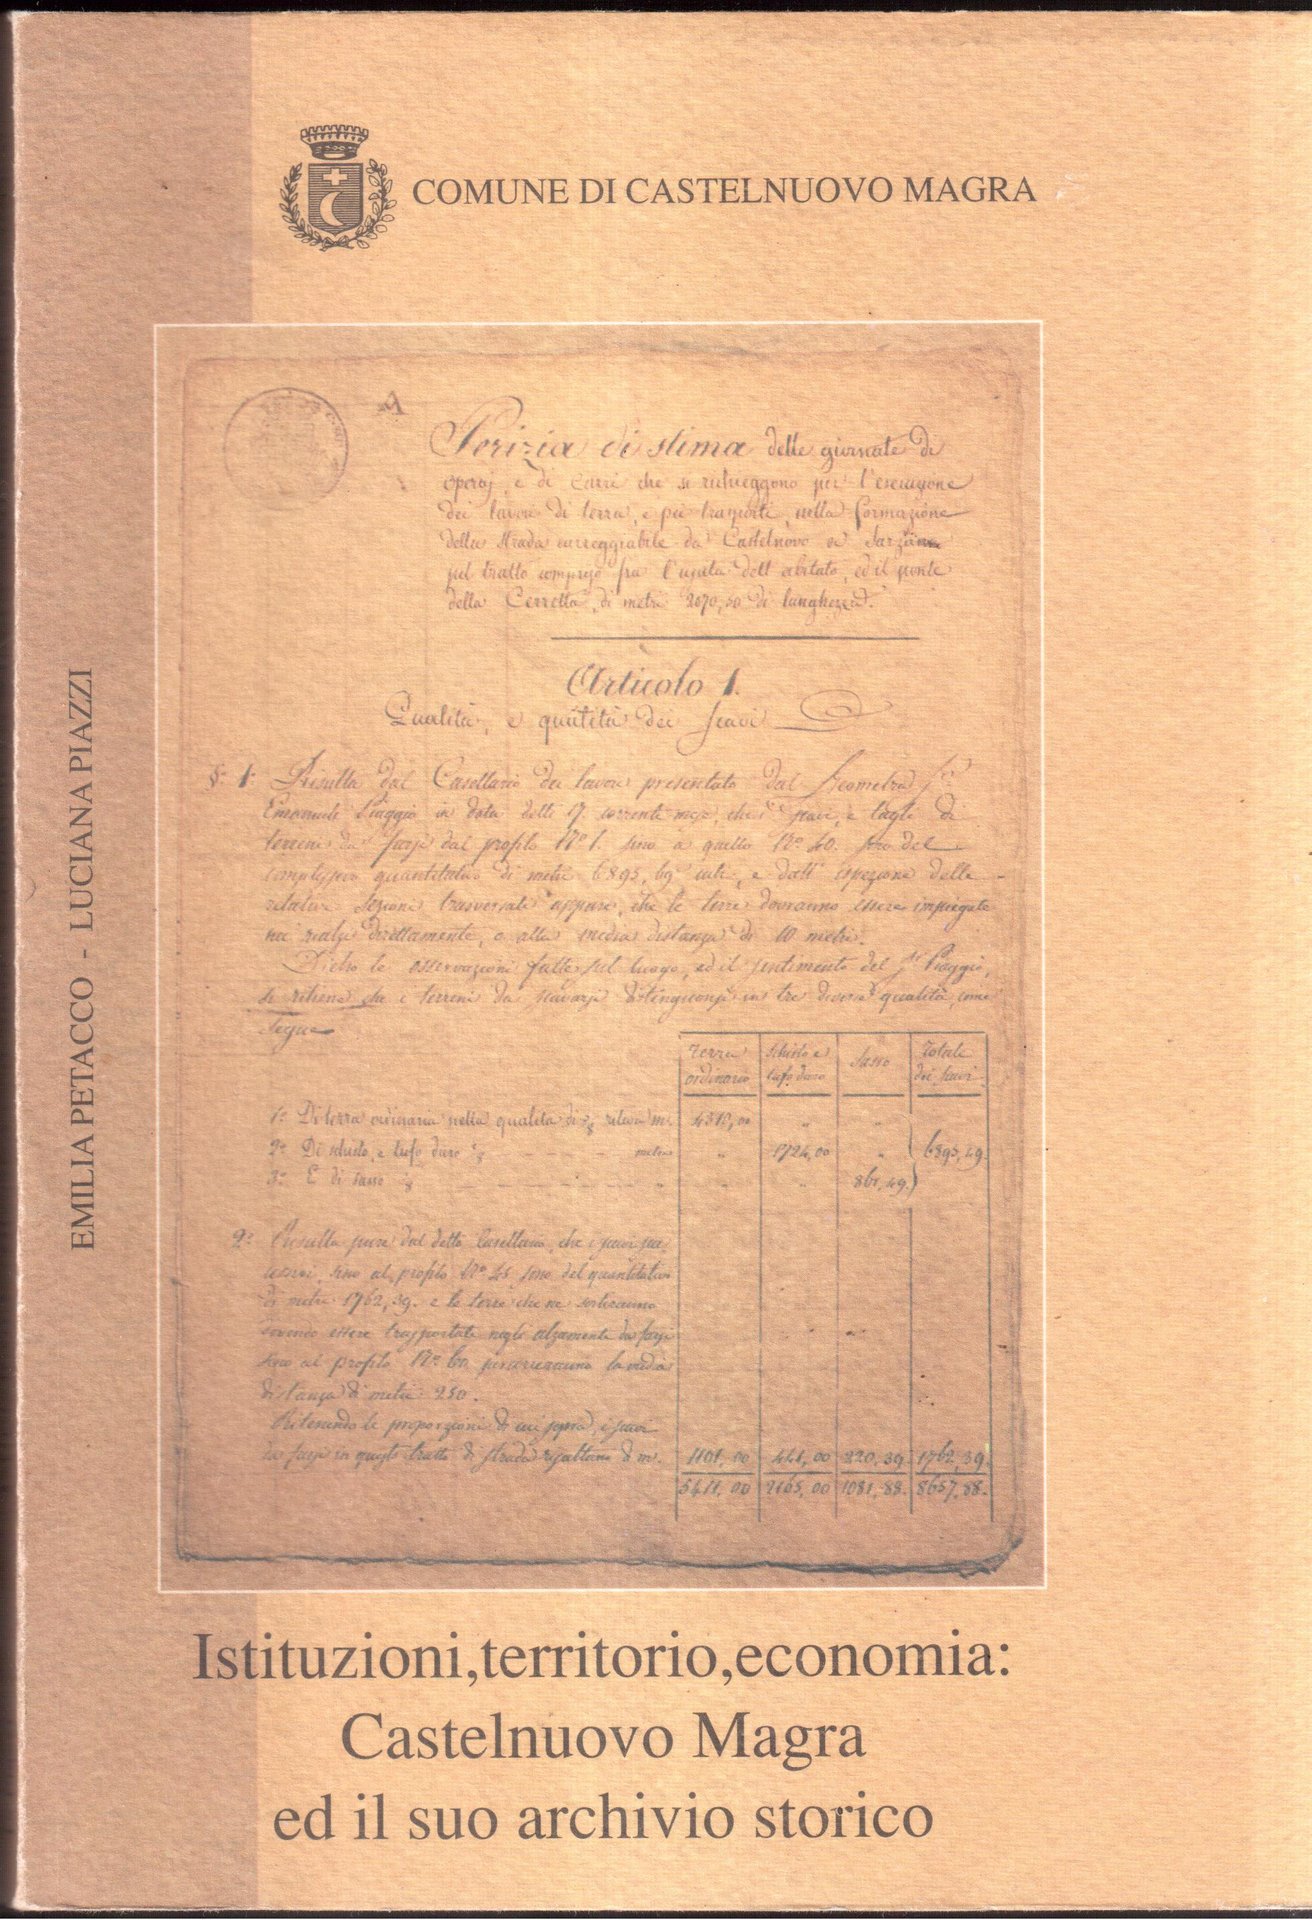 COMUNE DI CASTELNUOVO MAGRA
EMILIA PETACCO - LUCIANA PIAZZI
Perizia di stima delle giornate di
operaj, e di carri che si richieggono per l'esecuzione
dei lavori di terra, e pei trasporti, nella formazione
della strada carreggiabile da Castelnovo a Sarzana
pel tratto compreso fra l'uscita dell'abitato, ed il ponte
della Cerretta, di metri 2070,50 di lunghezza.
Articolo 1.
Qualità, e quantità dei scavi
§. 1. Risulta dal Casellario dei lavori presentato dal Geometra
Emanuele Piaggio in data delli 17. corrente mese, che i scavi, e tagli di
terreni da farsi dal profilo N° 1. sino a quello N° 40. sono del
complessivo quantitativo di metri 6895,49 cubi, e dall' ispezione delle
relative sezioni trasversali appare, che le terre dovranno essere impiegate
nei rialzi direttamente, o alla media distanza di 10 metri.
Dietro le osservazioni fatte sul luogo, ed il sentimento del Piaggio,
si ritiene che i terreni da scavarsi distinguonsi in tre diverse qualità, come
segue
Terra ordinaria
Schisto e tufo duro
Sasso
Totale dei scavi
1° Di terra ordinaria nella qualità di ritiene m. 4310,00 " "
2° Di schisto, e tufo duro metri " 1724,00 " 6895,49
3° E di sasso " " " 861,49
2° Risulta pure dal detto Casellario, che i scavi
sino al profilo N° 45 sono del quantitativo
di metri 1762,39. e le terre che ne sortiranno
dovendo essere trasportate negli alzamenti da farsi
sino al profilo N° 60 percorreranno la media
distanza di metri 250.
Ritenendo le proporzioni di cui sopra, i scavi
da farsi in questo tratto di strada risultano di m. 1101,00 441,00 220,39 1762,39.
5411,00 2165,00 1081,88. 8657,88.
Istituzioni,territorio,economia:
Castelnuovo Magra
ed il suo archivio storico